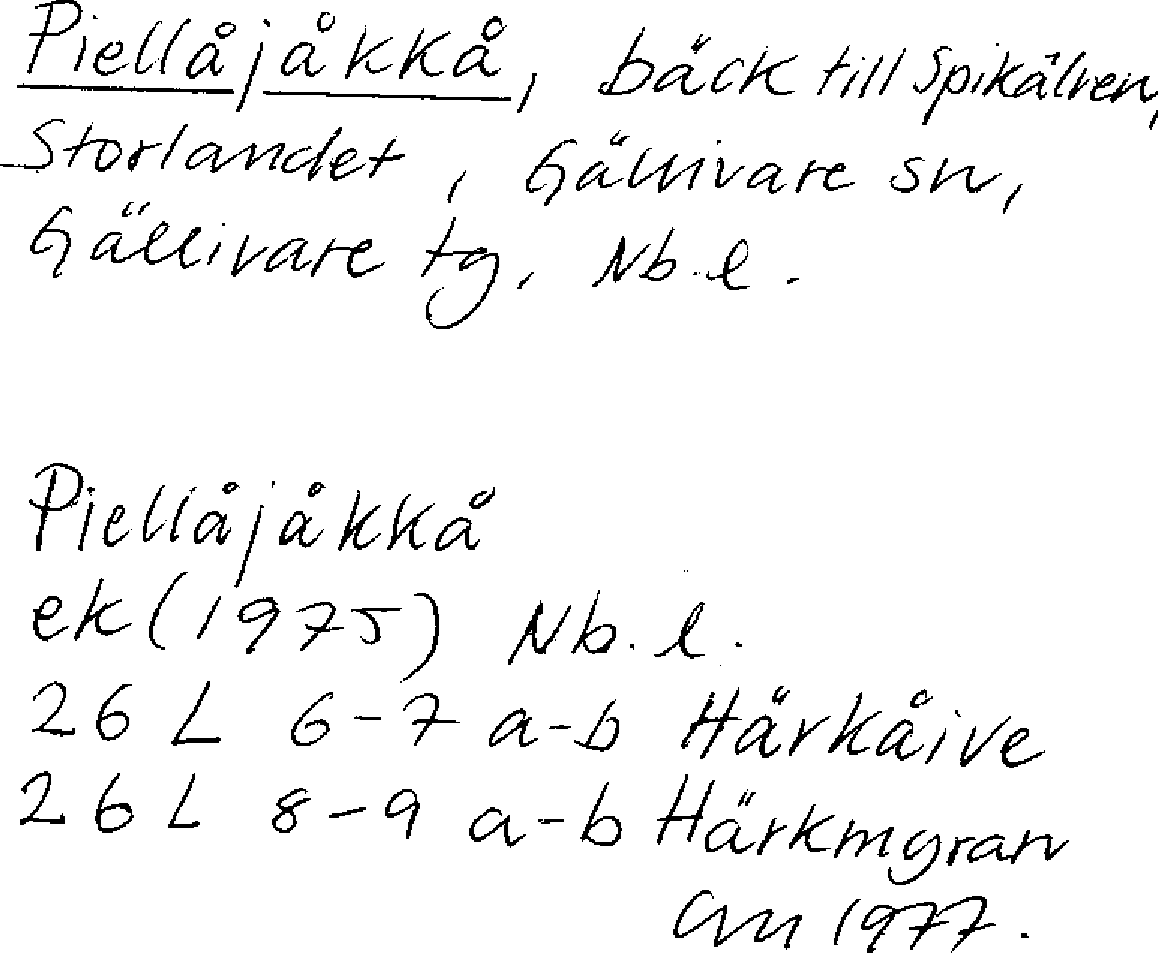 Piellåjåkkå, bäck till Spikälven,
Storlandet, Gällivare sn,
Gällivare tg, Nb.l.
Piellåjåkkå
ek (1975) Nb.l.
26 L 6-7 a-b Härkåive
26 L 8-9 a-b Härkmyran
1977.